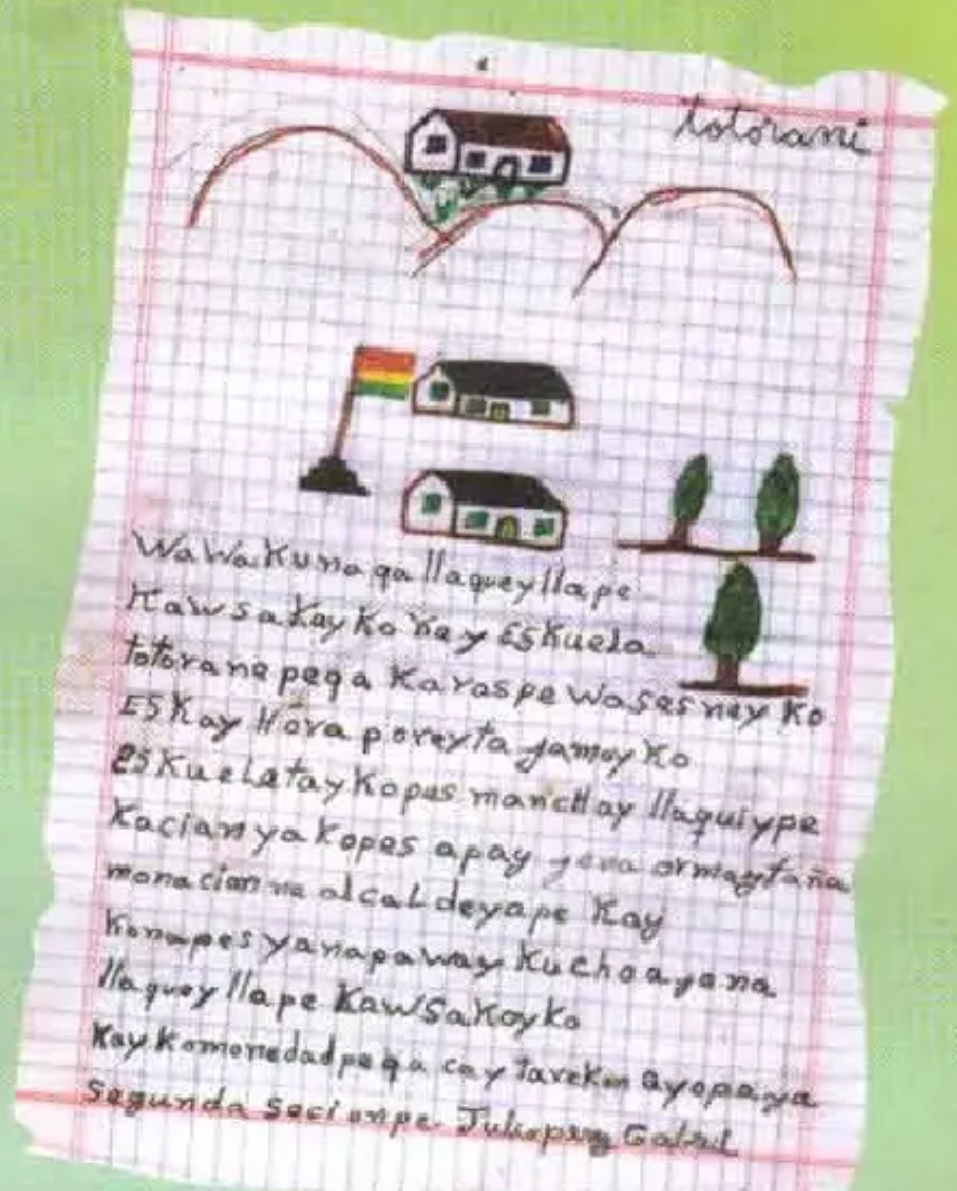 totorani
WaWaKunaqa llaqueyllape
KawsaKayKo Kay ESKuela
totoranepeqa Karaspe wasesneyKo
ESKay Hora poreyta jamoyKo
esKueLatayKopas mancHay llaquiype
Kacianyakopes apay
monacianna alcaldeyape Kay
Konapes yanapaway Kuchoayana
llaqueyllape KawSaKoyKo
Kay Komonedadpeqa cay tarekon ayopaya
Segunda Secionpe